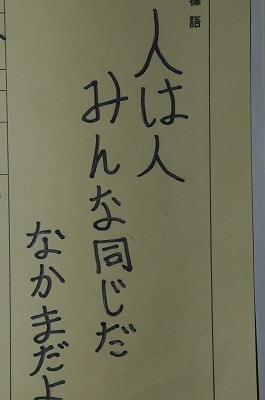 標語
人は人
みんな同じだ
なかまだよ